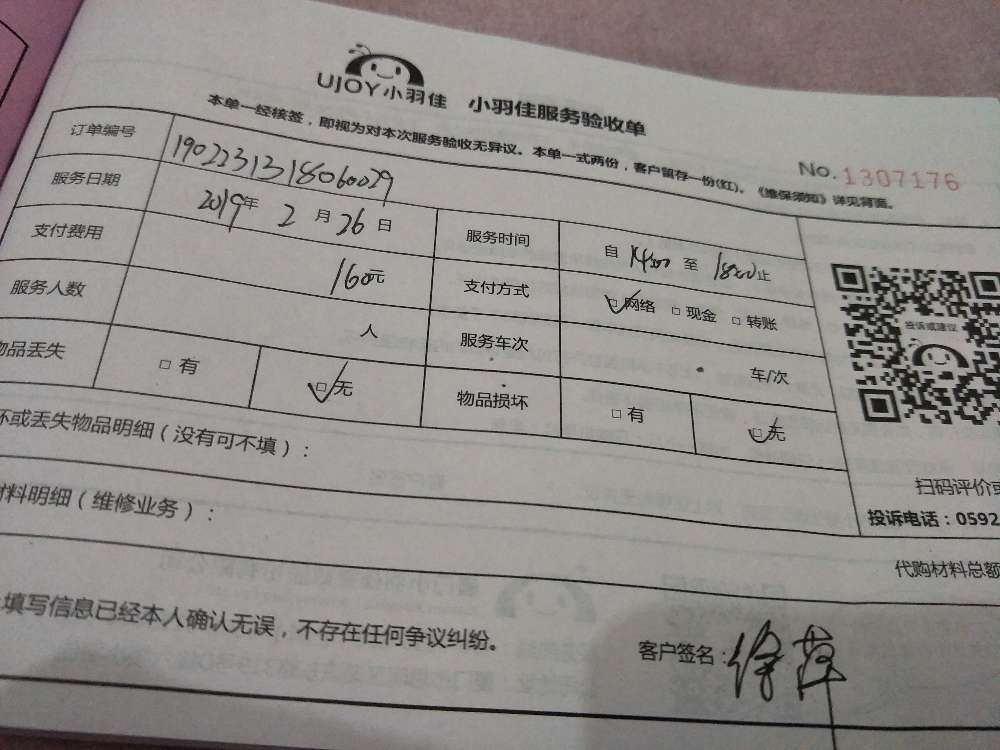 UJOY小羽佳 小羽佳服务验收单
本单一经核签，即视为对本次服务验收无异议。本单一式两份，客户留存一份(红)。《维保须知》详见背面。
No.1307176
订单编号 1902231318060029
服务日期 2019年 2 月 26 日 服务时间 自 14:00 至 18:00止
支付费用 160元 支付方式 网络 现金 转账
服务人数 人 服务车次 车/次
物品丢失 有 无 物品损坏 有 无
投诉或建议
坏或丢失物品明细（没有可不填）：
扫码评价或
材料明细（维修业务）：
投诉电话：0592
代购材料总额
填写信息已经本人确认无误，不存在任何争议纠纷。
客户签名：徐萍